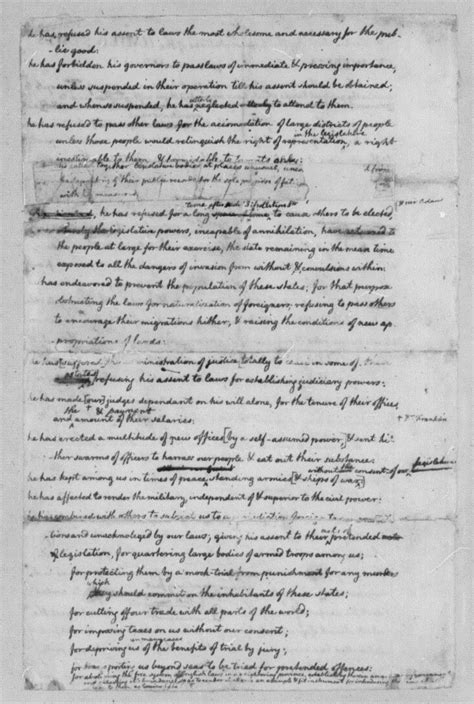 he has refused his assent to laws the most wholesome and necessary for the pub-
-lic good:
he has forbidden his governors to pass laws of immediate & pressing importance,
unless suspended in their operation till his assent should be obtained;
and when so suspended, he has neglected utterly to attend to them.
he has refused to pass other laws for the accomodation of large districts of people
unless those people would relinquish the right of representation in the legislature, a right
inestimable to them, & formidable to tyrants only:
he has called together legislative bodies at places unusual,
the depository of their public records for the sole purpose of
he has refused for a long time after such dissolutions to cause others to be elected
whereby the legislative powers, incapable of annihilation, have returned to
the people at large for their exercise, the state remaining in the mean time
exposed to all the dangers of invasion from without & convulsions within
has endeavored to prevent the population of these states; for that purpose
obstructing the laws for naturalization of foreigners; refusing to pass others
to encourage their migrations hither; & raising the conditions of new ap-
-propriations of lands:
he has suffered the administration of justice totally to cease in some of these
states refusing his assent to laws for establishing judiciary powers:
he has made [our] judges dependant on his will alone, for the tenure of their offices,
the & payment
+ Dr Franklin
and amount of their salaries:
he has erected a multitude of new offices [by a self-assumed power,] & sent hi-
-ther swarms of officers to harrass our people & eat out their substance:
without the consent of our legislatures
he has kept among us in times of peace, standing armies [& ships of war]
he has affected to render the military, independent of & superior to the civil power:
he has combined with others to subject us to a jurisdiction foreign to
-tions and unacknoleged by our laws; giving his assent to their pretended acts of
legislation, for quartering large bodies of armed troops among us;
for protecting them by a mock-trial from punishment for any murders
which
they should commit on the inhabitants of these states;
for cutting off our trade with all parts of the world;
for imposing taxes on us without our consent;
in many cases
for depriving us of the benefits of trial by jury;
for transporting us beyond seas to be tried for pretended offences:
for abolishing the free system of English laws in a neighboring province, establishing therein